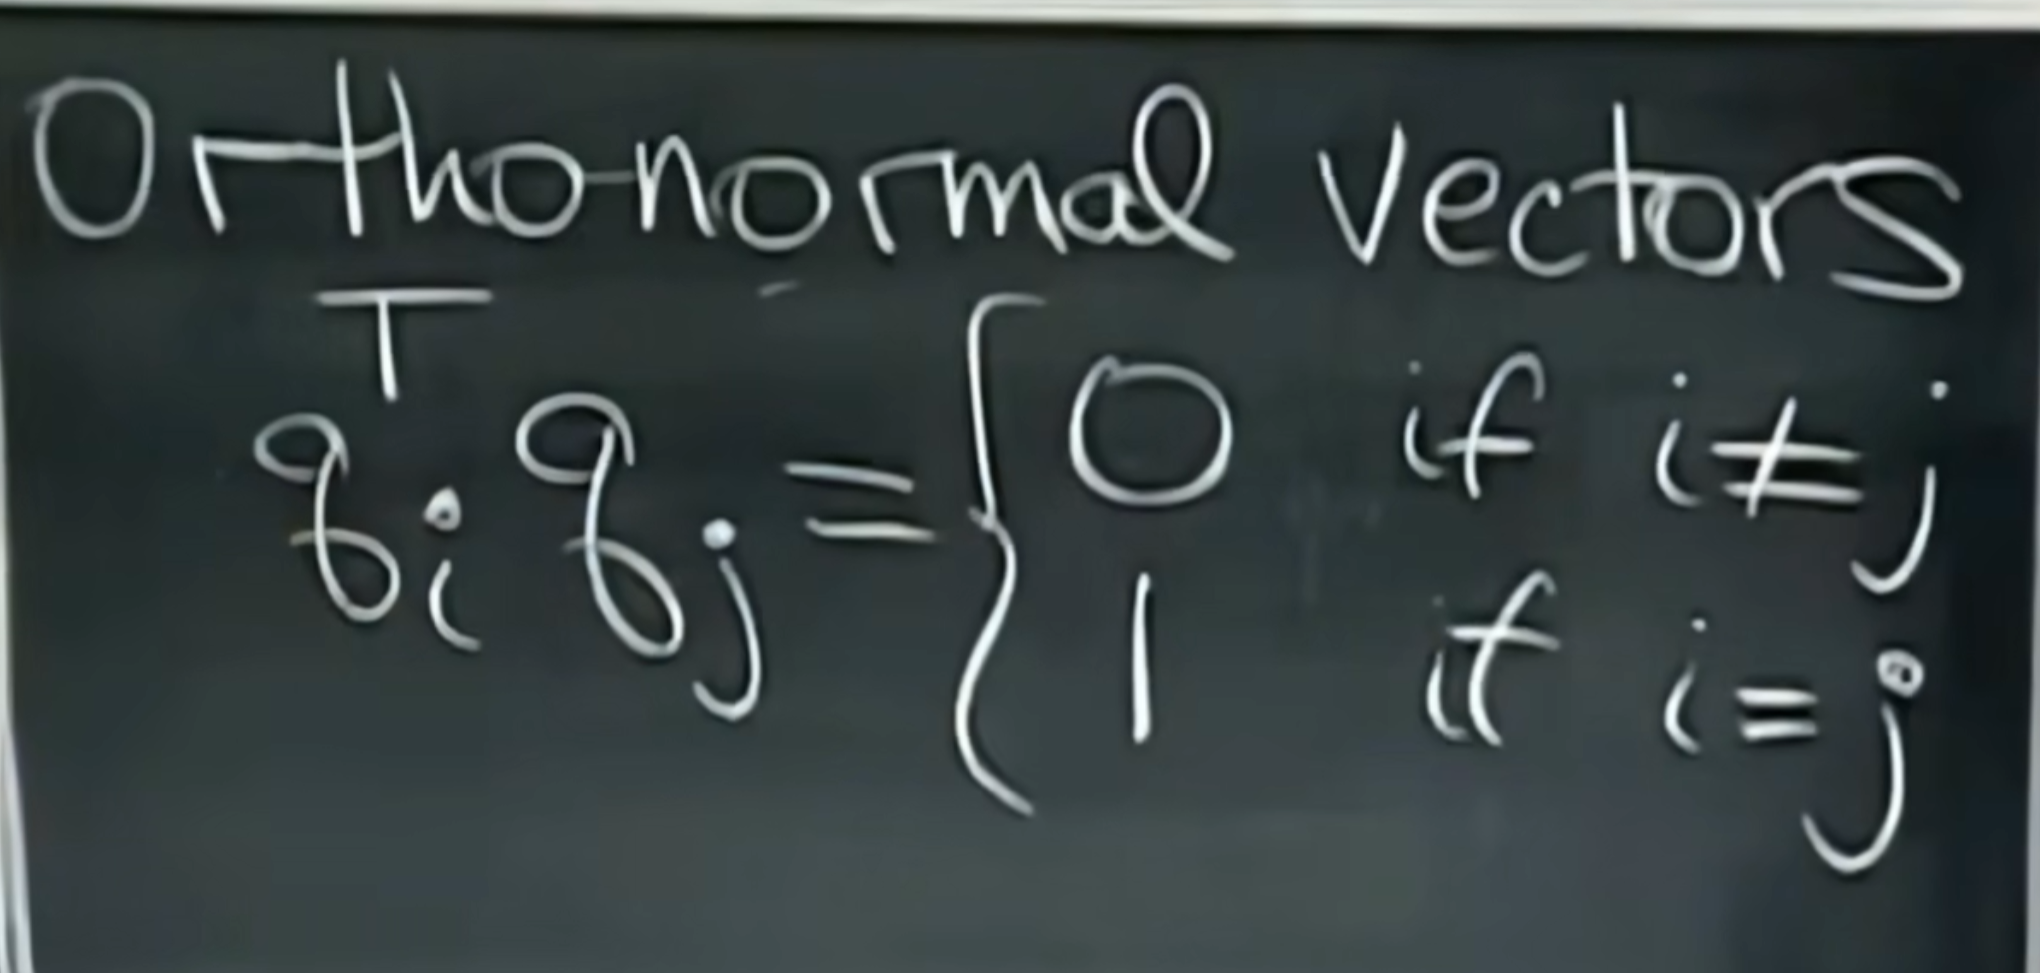 Orthonormal vectors
qᵢᵀqⱼ = { 0 if i ≠ j
1 if i = j